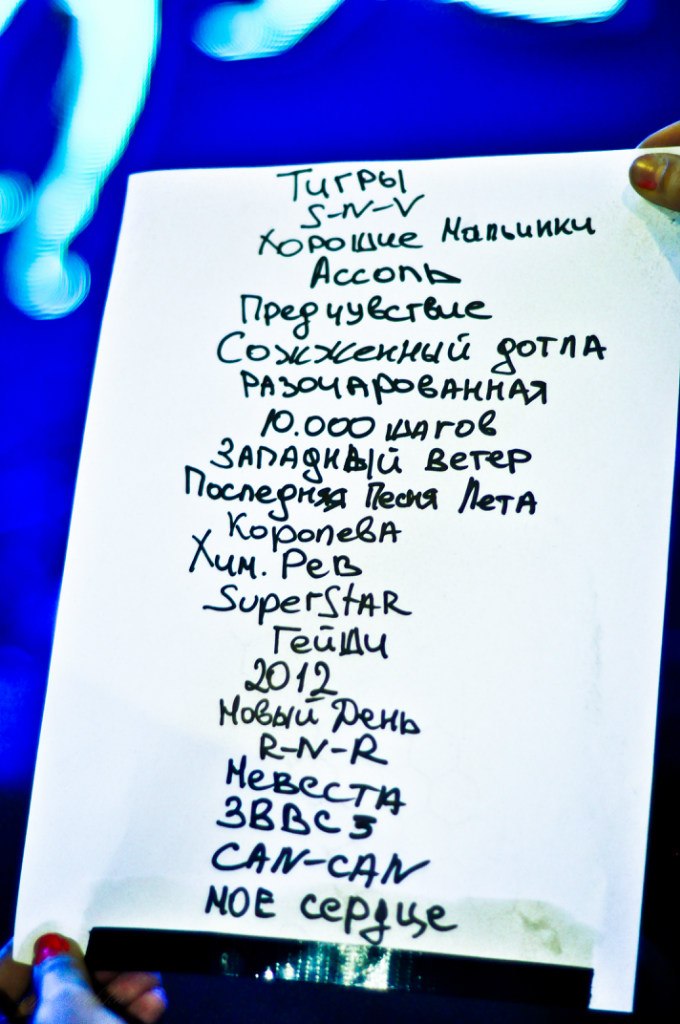 Тигры
S-N-V
Хорошие Мальчики
Ассоль
Предчувствие
Сожженный дотла
РАЗОЧАРОВАННАЯ
10.000 шагов
ЗАПАДНЫЙ ВЕТЕР
Последняя Песня Лета
Королева
Хим. Рев
SuperStAR
Гейши
2012
Новый День
R-N-R
Невеста
ЗВВСЗ
CAN-CAN
МОЕ сердце